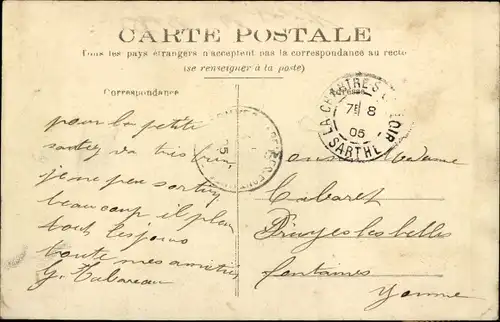 CARTE POSTALE
Tous les pays étrangers n'acceptent pas la correspondance au recto
(se renseigner à la poste)
Correspondance
Adresse
LA CHARTRE S. LE LOIR
7E 8
05
SARTHE
pour la petite
sortez va très bien,
je ne peu sortir
beaucoup il pleu
tout les jours
toute mes amitiés
G. Tabareau
Madame
Cabaret
Druyes les belles
fontaines
Yonne